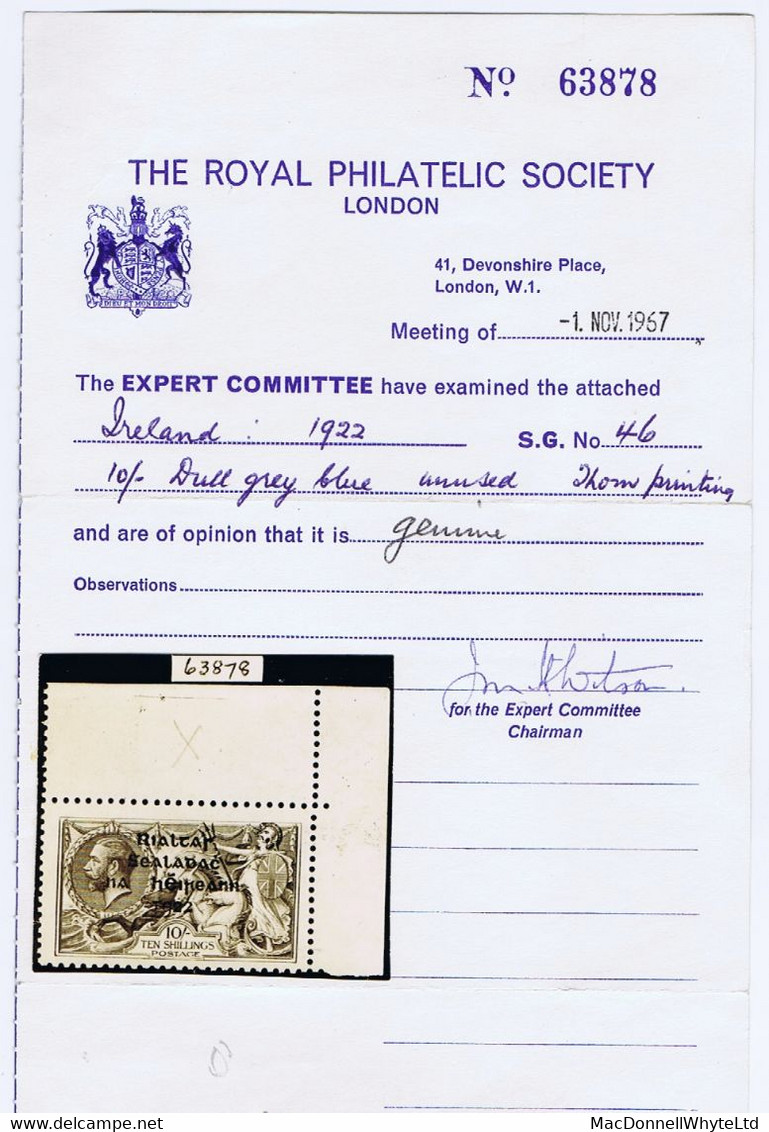 Nº 63878
THE ROYAL PHILATELIC SOCIETY
LONDON
DIEU ET MON DROIT
41, Devonshire Place,
London, W.1.
Meeting of -1. NOV. 1967
The EXPERT COMMITTEE have examined the attached
Ireland : 1922 S.G. No 46
10/- Dull grey blue unused Thom printing
and are of opinion that it is genuine
Observations
for the Expert Committee
Chairman
63878
X
Rialtar
Sealadaċ
na hÉireann
1922
10/-
TEN SHILLINGS
POSTAGE
MacDonnellWhyteLtd